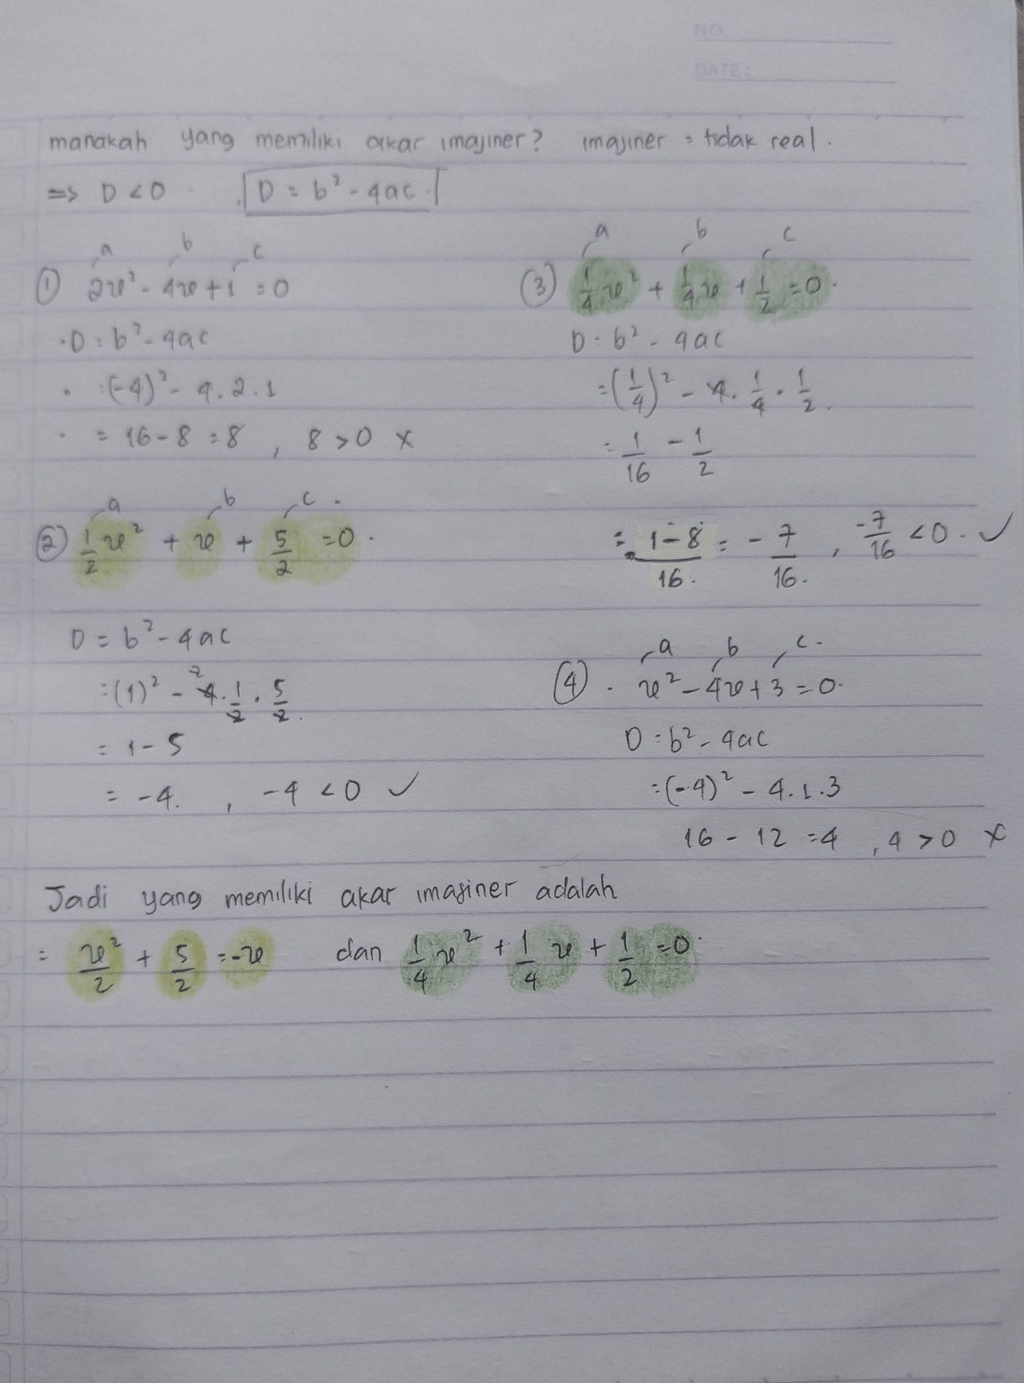 NO.
DATE:
manakah yang memiliki akar imajiner? imajiner = tidak real.
=> D < 0 D = b² - 4ac.
a b c
① 2x² - 4x + 1 = 0
D = b² - 4ac
= (-4)² - 4.2.1
= 16 - 8 = 8 , 8 > 0 ×
a b c
② 1/2 x² + x + 5/2 = 0.
D = b² - 4ac
= (1)² - 4 . 1/2 . 5/2
2
= 1 - 5
= -4. , -4 < 0 ✓
a b c
③ 1/4 x² + 1/4 x + 1/2 = 0.
D = b² - 4ac
= (1/4)² - 4 . 1/4 . 1/2.
= 1/16 - 1/2
= 1-8/16. = -7/16. , -7/16 < 0. ✓
a b c.
④ . x² - 4x + 3 = 0.
D = b² - 4ac
= (-4)² - 4.1.3
16 - 12 = 4 , 4 > 0 ×
Jadi yang memiliki akar imajiner adalah
= x²/2 + 5/2 = -x dan 1/4 x² + 1/4 x + 1/2 = 0.